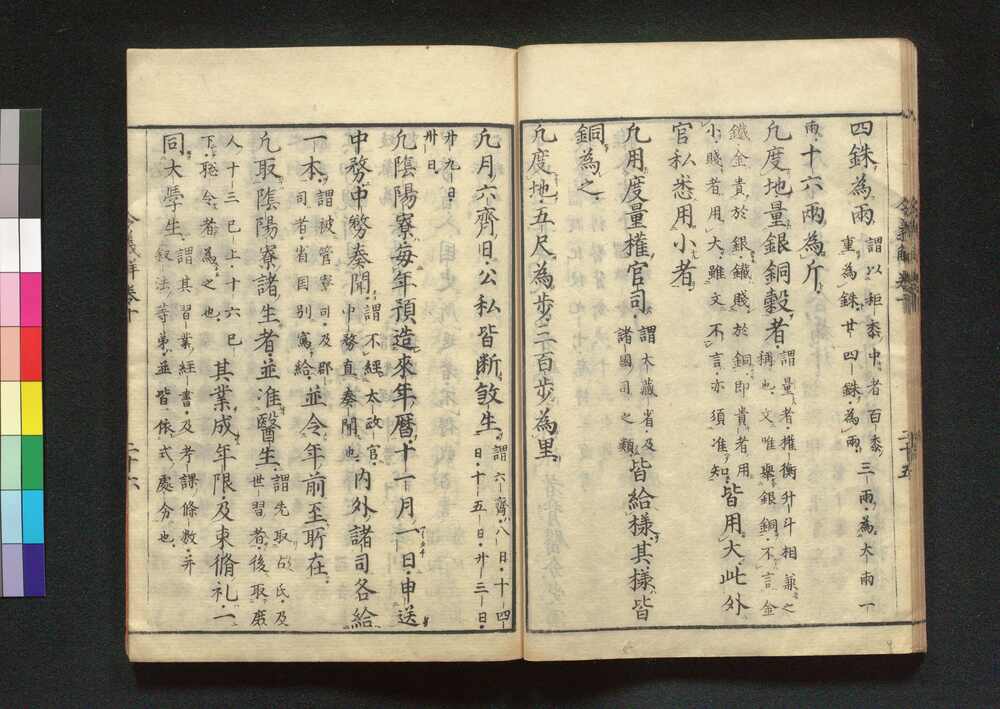 四銖為兩謂以秬黍中者百黍重為銖廿四銖為兩三兩為大兩一
兩十六兩為斤
凡度地量銀銅穀者謂量者權衡升斗相兼之稱也文唯舉銀銅不言金
鐵金貴於銀鐵賤於銅即貴者用小賤者用大雖文不言亦須准知皆用大此外
官私悉用小者
凡用度量權官司謂大藏省及諸國司之類皆給樣其樣皆
銅為之
凡度地五尺為步三百步為里
令義解卷十
二十五
凡月六齊日公私皆断敘生謂六齊八日十四日十五日廿三日
廿九日卅日
凡陰陽寮每年預造來年曆十一月一日申送
中務中務奏聞謂不經太政官中務直奏聞也內外諸司各給
一本謂被管寮司及郡司者省国別寫給並令年前至所在
凡取陰陽寮諸生者並准醫生謂先取占氏及世習者後取庶
人十三已上十六已下聡令者為之也其業成年限及束脩礼一
同大學生謂其習業經書及考課條數并叙法等弟並皆依式處分也
二十六